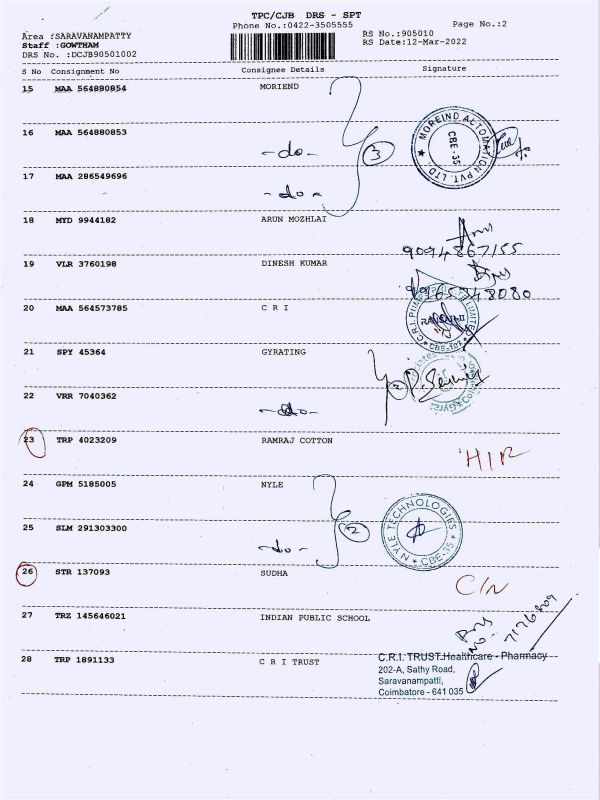 TPC/CJB DRS - SPT
Phone No.:0422-3505555 Page No.:2
Area :SARAVANAMPATTY RS No.:905010
Staff :GOWTHAM RS Date:12-Mar-2022
DRS No. :DCJB90501002
S No Consignment No Consignee Details Signature
15 MAA 564880854 MORIEND
16 MAA 564880853
-do- 3
MOREIND AUTOMATION PVT. LTD ★ CBE-35
17 MAA 286549696
-do-
18 MYD 9944182 ARUN MOZHLAI
9094867155
19 VLR 3760198 DINESH KUMAR
20 MAA 564573785 C R I
CBE-107
21 SPY 45364 GYRATING
2
22 VRR 7040362
-do-
23 TRP 4023209 RAMRAJ COTTON
24 GPM 5185005 NYLE
NYLE TECHNOLOGIES ★ CBE-35 ★
2
25 SLM 291303300
-do-
26 STR 137093 SUDHA
C/N
27 TRZ 145646021 INDIAN PUBLIC SCHOOL
28 TRP 1891133 C R I TRUST
C.R.I. TRUST Healthcare - Pharmacy
202-A, Sathy Road,
Saravanampatti,
Coimbatore - 641 035